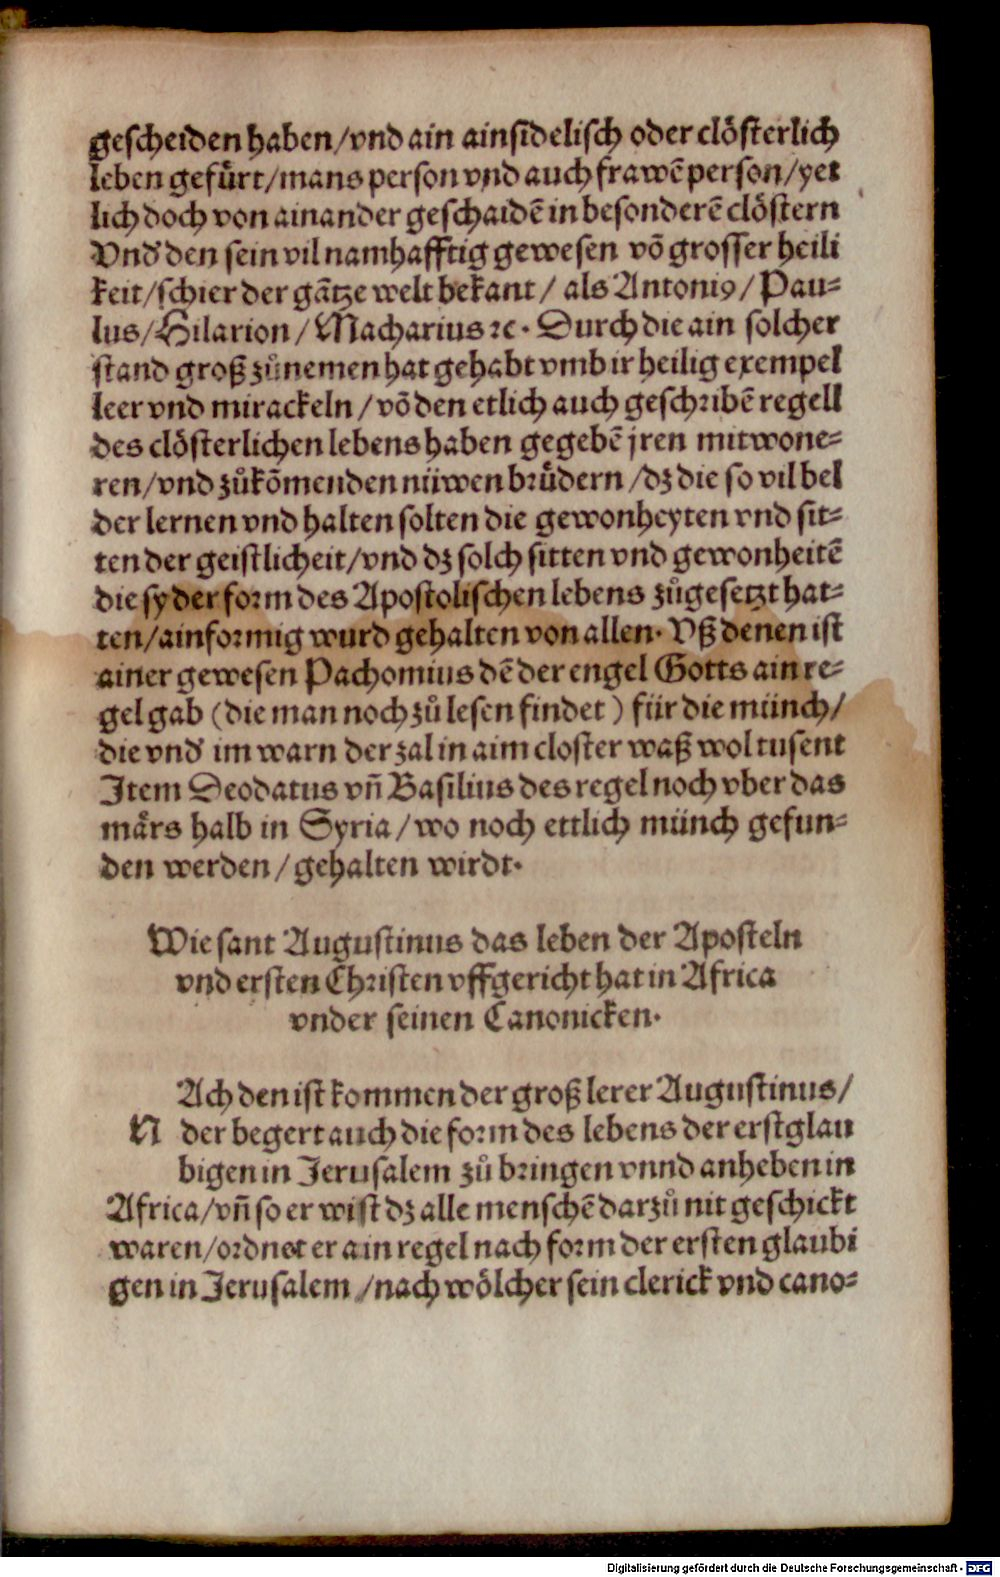 gescheiden haben/vnd ain ainsidelisch oder clösterlich
leben gefuͤrt/mans person vnd auch frawē person/yet
lich doch von ainander geschaidē in besonderē clöstern
Vnd᷑ den sein vil namhafftig gewesen vō grosser heili
keit/schier der gātze welt bekant/ als Antoniꝰ/ Pau-
lus/Hilarion/Macharius ꝛc. Durch die ain solcher
stand groß zuͦnemen hat gehabt vmb ir heilig exempel
leer vnd mirackeln/vō den etlich auch geschribē regell
des clösterlichen lebens haben gegebē jren mitwone-
ren/vnd zuͦkōmenden nüwen bruͤdern/dz die so vil bel
der lernen vnd halten solten die gewonheyten vnd sit-
ten der geistlicheit/vnd dz solch sitten vnd gewonheitē
die sy der form des Apostolischen lebens zuͦgesetzt hat-
ten/ainformig wurd gehalten von allen. Vß denen ist
ainer gewesen Pachomius dē der engel Gotts ain re-
gel gab (die man noch zuͦ lesen findet) für die münch/
die vnd᷑ im warn der zal in aim closter waß wol tusent
Item Deodatus vñ Basilius des regel noch vber das
märs halb in Syria/wo noch ettlich münch gefun-
den werden/gehalten wirdt.
Wie sant Augustinus das leben der Aposteln
vnd ersten Christen vffgericht hat in Africa
vnder seinen Canonicken.
Ach den ist kommen der groß lerer Augustinus/
N der begert auch die form des lebens der erstglau
bigen in Jerusalem zuͦ bringen vnnd anheben in
Africa/vñ so er wist dz alle menschē darzuͦ nit geschickt
waren/ordnet er ain regel nach form der ersten glaubi
gen in Jerusalem/nach wölcher sein clerick vnd cano-
Digitalisierung gefördert durch die Deutsche Forschungsgemeinschaft - DFG